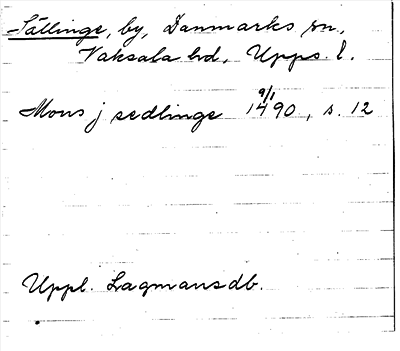 Sällinge, by, Danmarks sn,
Vaksala hd, Upps. l.
Mons j sedlinge 9/1 1490, s. 12
Uppl. Lagmansdb.